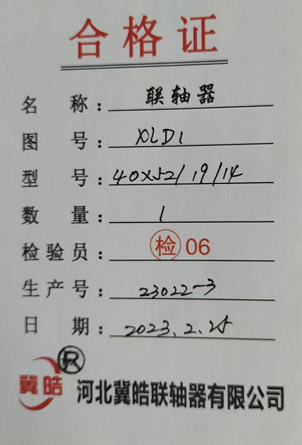 合格证
名称：联轴器
图号：XLD1
型号：40X52/19/14
数量：1
检验员：检06
生产号：23022-3
日期：2023.2.25
冀皓 R 河北冀皓联轴器有限公司